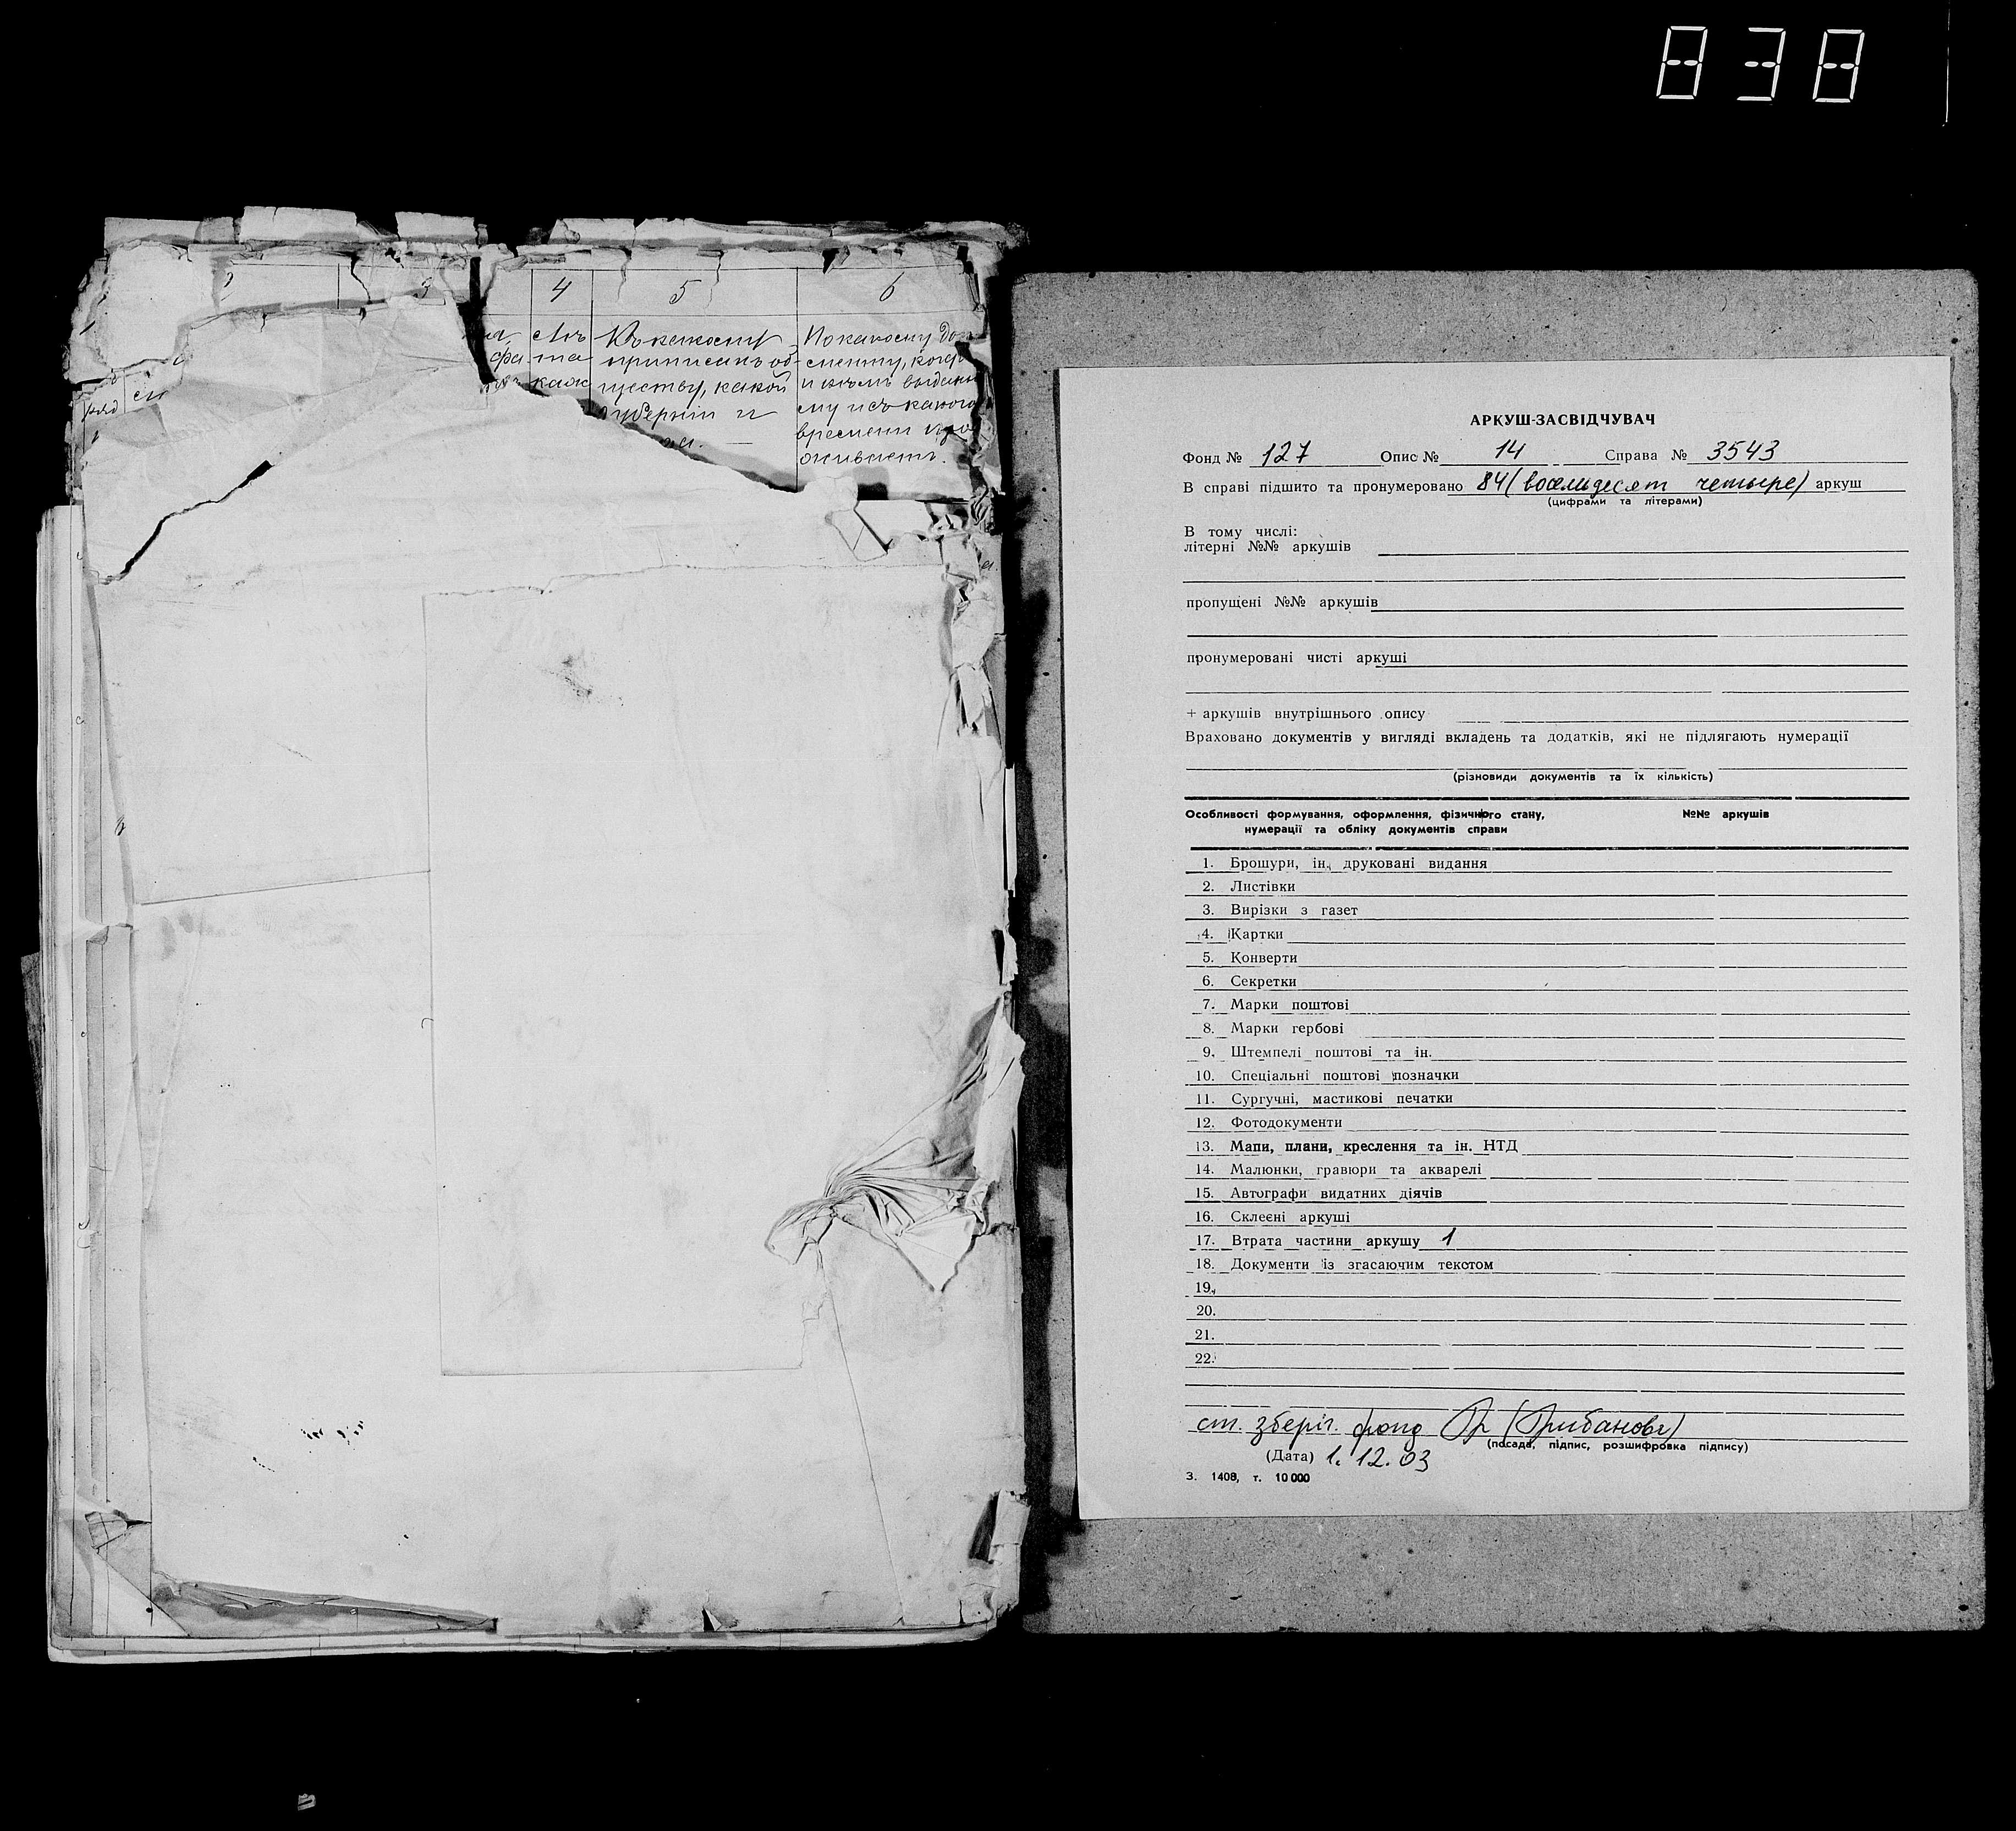 838
2 3 4 5 6
Лѣ Къ какому По какому до
фа та приписанъ об- кменту, когда
каж ществу, какой и кѣмъ выдан
ряд губерніи и му и съ какого
времени про
живаетъ.
АРКУШ-ЗАСВІДЧУВАЧ
Фонд № 127 Опис № 14 Справа № 3543
В справі підшито та пронумеровано 84 (восемьдесят четыре) аркуш
(цифрами та літерами)
В тому числі:
літерні №№ аркушів
пропущені №№ аркушів
пронумеровані чисті аркуші
+ аркушів внутрішнього опису
Враховано документів у вигляді вкладень та додатків, які не підлягають нумерації
(різновиди документів та їх кількість)
Особливості формування, оформлення, фізичного стану, №№ аркушів
нумерації та обліку документів справи
1. Брошури, ін. друковані видання
2. Листівки
3. Вирізки з газет
4. Картки
5. Конверти
6. Секретки
7. Марки поштові
8. Марки гербові
9. Штемпелі поштові та ін.
10. Спеціальні поштові позначки
11. Сургучні, мастикові печатки
12. Фотодокументи
13. Мапи, плани, креслення та ін. НТД
14. Малюнки, гравюри та акварелі
15. Автографи видатних діячів
16. Склеєні аркуші
17. Втрата частини аркушу 1
18. Документи із згасаючим текстом
19.
20.
21.
22.
ст. зберіг. фонд (Грибанова)
(посада, підпис, розшифровка підпису)
(Дата) 1. 12. 03
З. 1408, т. 10 000